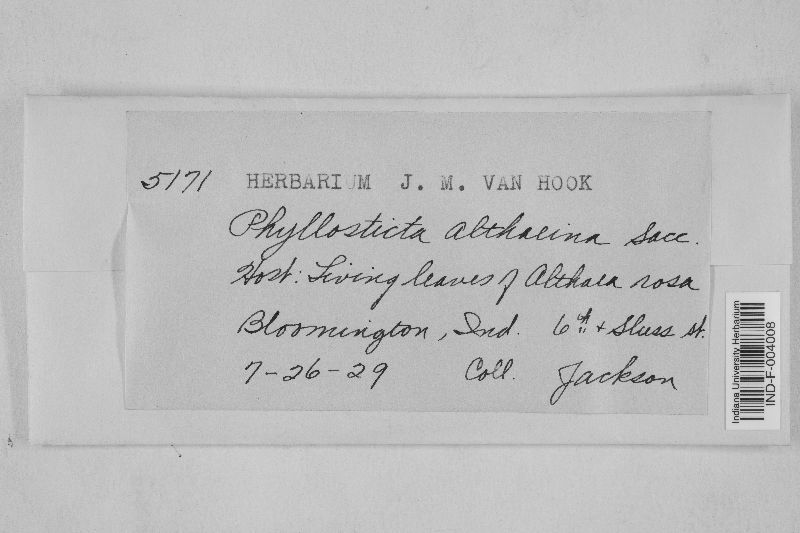 5171 HERBARIUM J. M. VAN HOOK
Phyllosticta althaeina Sacc.
Host: Living leaves of Althaea rosa
Bloomington, Ind. 6th + Sluss st.
7-26-29 Coll. Jackson
Indiana University Herbarium
IND-F-004008